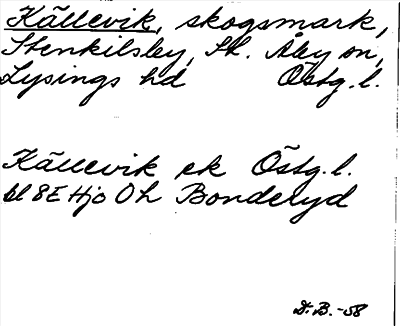 Källevik, skogsmark,
Stenkilsby, St. Åby sn,
Lysings hd Östg.l.
Källevik ek Östg.l.
bl 8E Hjo Oh Bonderyd
D.B.-58